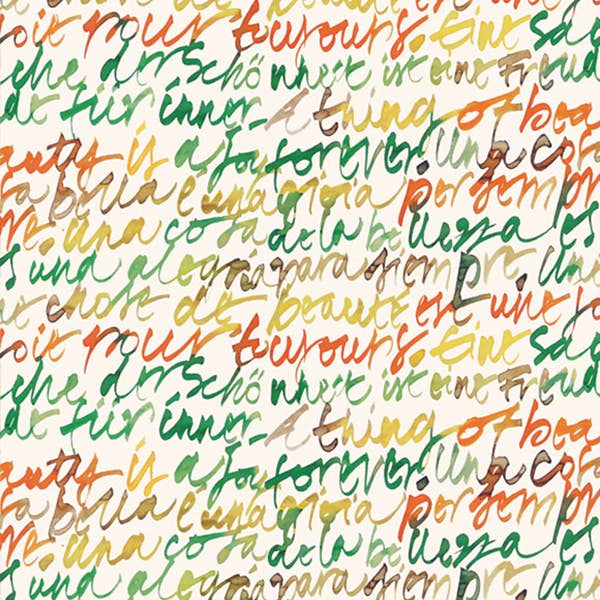 oie pour toujours. Eine sac
che der Schönheit ist eine Freud
de für inner- A thing of bea
auty is a joy forever Una cosa
sa bella è una gioia per sempr
re. Una cosa de la belleza es
s una alegría para siempre Une
ne chose de beauté est une jo
oie pour toujours. Eine sac
che der Schönheit ist eine Freud
de für inner- A thing of bea
auty is a joy forever Una cosa
sa bella è una gioia per sempr
re. Una cosa de la belleza es
s una alegría para siempre Une